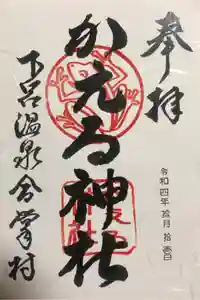 奉拝
令和四年拾月拾壹日
かえる神社
下呂温泉合掌村